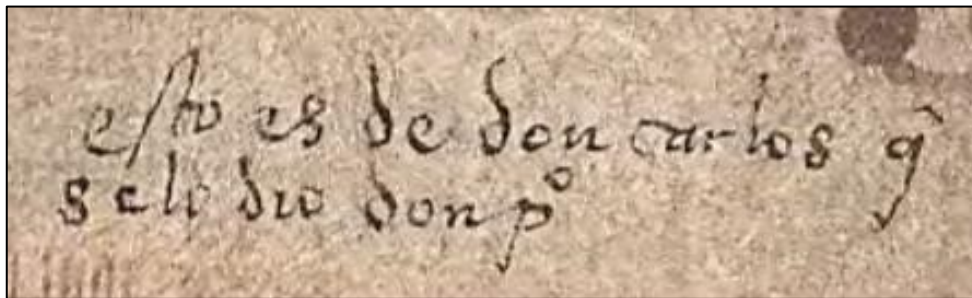 esto es de don carlos q̃
selo dio don pº